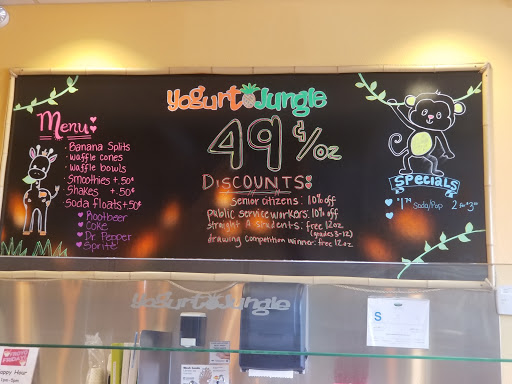 Yogurt Jungle
49¢/oz
Menu
• Banana Splits
• waffle cones
• waffle bowls
• Smoothies +.50¢
• Shakes +.50¢
• Soda floats +.50¢
Rootbeer
Coke
Dr Pepper
Sprite
Discounts:
senior citizens: 10% off
public service workers: 10% off
straight A students: free 12oz
(grades 3-12)
drawing competition winner: free 12oz
Specials
Soda/Pop
Yogurt Jungle
S
Happy Hour